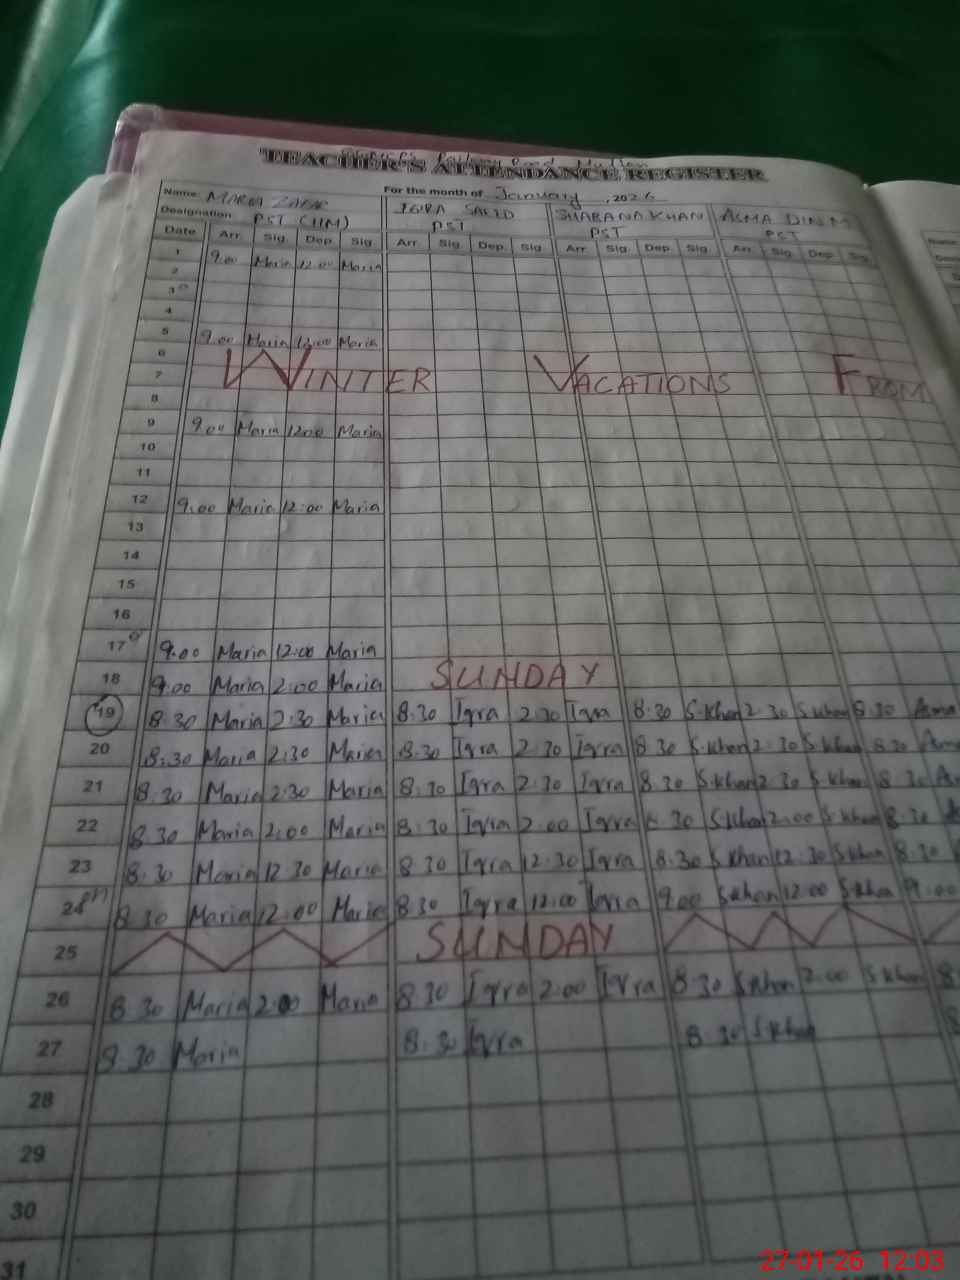 Road Multan
TEACHER'S ATTENDANCE REGISTER
Name: MARIA ZAFAR For the month of January, 2026
IQRA SAEED SHABANA KHAN ASMA DIN M
Designation: PST (HM) PST PST PST
Date Arr. Sig. Dep. Sig. Arr. Sig. Dep. Sig. Arr. Sig. Dep. Sig. Arr. Sig. Dep. Sig.
1 9.00 Maria 12.00 Maria
2
3
4
5 9.00 Maria 12.00 Maria
6
7 WINTER VACATIONS FROM
8
9 9.00 Maria 12.00 Maria
10
11
12 9.00 Maria 12:00 Maria
13
14
15
16
17 9.00 Maria 12:00 Maria
18 9:00 Maria 2:00 Maria SUNDAY
19 8:30 Maria 2:30 Maria 8.30 Iqra 2.30 Iqra 8.30 S.Khan 2.30 S.Khan 8.30 Asma
20 8:30 Maria 2:30 Maria 8.30 Iqra 2.30 Iqra 8.30 S.Khan 2.30 S.Khan 8.30
21 8.30 Maria 2:30 Maria 8.30 Iqra 2.30 Iqra 8.30 S.Khan 2.30 S.Khan 8.30
22 8.30 Maria 2:00 Maria 8.30 Iqra 2.00 Iqra 8.30 S.Khan 2.00 S.Khan 8.30
23 8.30 Maria 12.30 Maria 8.30 Iqra 12.30 Iqra 8.30 S.Khan 12.30 S.Khan 8.30
24 8.30 Maria 12:00 Maria 8.30 Iqra 12.00 Iqra 9.00 S.Khan 12.00 S.Khan 9:00
25 SUNDAY
26 8.30 Maria 2:00 Maria 8.30 Iqra 2:00 Iqra 8.30 S.Khan 2:00 S.Khan 8
27 8.30 Maria 8.30 Iqra 8.30 S.Khan 8
28
29
30
31
27-01-26 12:03